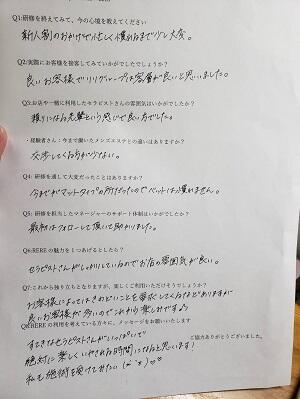 Q1:研修を終えてみて、今の心境を教えてください
新人割のおかげで忙しく慣れるまで少し大変。
Q2:実際にお客様を接客してみていかがでしたでしょうか?
良いお客様でリリグループは客層が良いと思いました。
Q3:お店や一緒に利用したセラピストさんの雰囲気はいかがでしたか?
頼りになる先輩という感じで良い方でした。
・経験者さん:今まで働いたメンズエステとの違いはありますか?
交渉してくる方が少ない。
Q4:研修を通して大変だったことはありますか?
今までがマットタイプの所だったのでベットは慣れません。
Q5:研修を担当したマネージャーのサポート体制はいかがでしたか?
最初はフォローして頂いて助かりました。
Q6:REREの魅力を1つあげるとしたら?
セラピストさんがしっかりしているのでお店の雰囲気が良い。
Q7:これから独り立ちとなりますが、楽しくご利用いただけそうでしょうか?
お客様によってはきわどいことを要求してくる方などありますが
良いお客様が多いのでこれから楽しみです♪
Q8:REREの利用を考えている方々に、メッセージをお願いいたします
すてきなセラピストさんがいっぱいで
ご協力ありがとうございました。
絶対に楽しくいやされる時間になると思います!
私も施術を受けてみたい